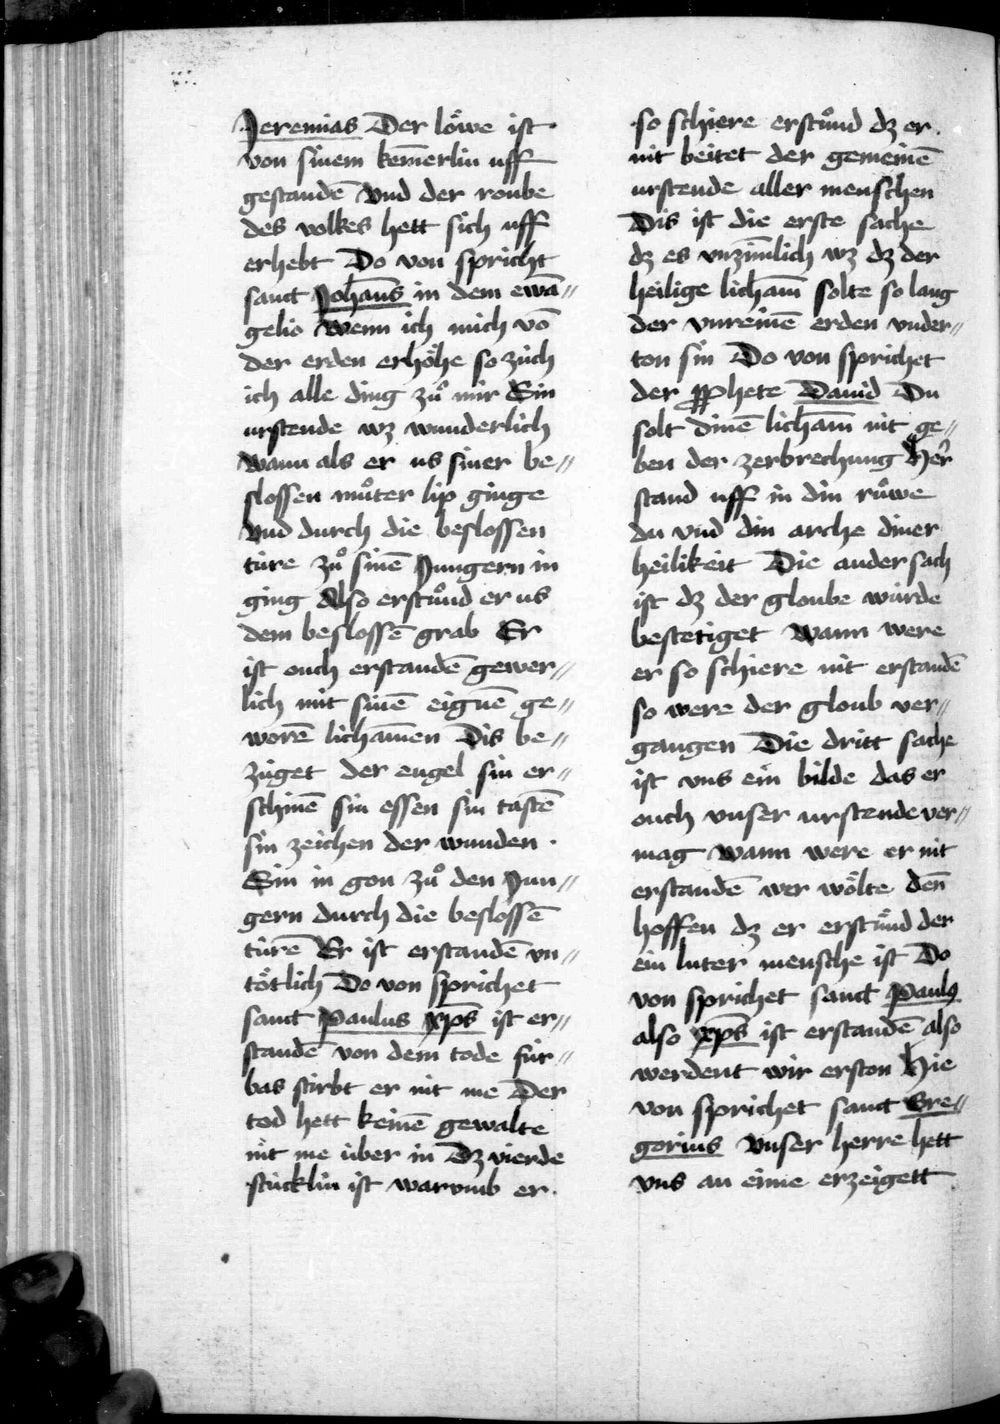 Jeremias Der lo&#776;we ist
von sinem kem̄erlin uff
gestandē Vnd der roube
des volkes hett sich uff
erhebt Do von spricht
sanct Johan̄s in dem ewā⸗
gelio Wenn ich mich vō
der erden erho&#776;he so züch
ich alle ding zuͦ mir Sin
urstende wz wunderlich
Wann als er us siner be⸗
slossen muͦter lip ginge
Vnd durch die beslossen
türe zuͦ sinē Jungern in
ging Also erstuͦnd er us
dem beslossē grab Er
ist ouch erstandē gewer⸗
lich mit sinē eignē ge⸗
worē licham̄en Dis be⸗
züget der engel sin er⸗
schinē sin essen sin tastē
sin zeichen der wunden .
Sin in gon zuͦ den Jun⸗
gern durch die beslossē
türē Er ist erstandē vn⸗
tötlich Do von sprichet
sanct Paulus xp̄s ist er⸗
standē von dem tode für⸗
bas stirbt er nit me Der
tod hett keinē gewalte
nit me über in Dz vierde
stücklin ist warumb er .
so schiere erstuͦnd dz er .
nit beitet der gemeinē
urstende aller menschen
Dis ist die erste sache
dz es vnzim̄lich wz dz der
heilige licham̄ solte so lang
der vnreinē erden vnder⸗
ton sin Do von sprichet
der ꝓphete Dauid Du
solt dinē licham̄ nit ge⸗
ben der zerbrechung Her̄
stand uff in din ruͦwe
du vnd din arche diner
heilikeit Die ander sach
ist dz der gloube würde
bestetiget Wann were
er so schiere nit erstandē
so were der gloub ver⸗
gangen Die dritt sache
ist vns ein bilde das er
ouch vnser urstende ver⸗
mag Wann were er nit
erstandē wer wölte den̄
hoffen dz er erstuͦnd der
ein luter mensche ist Do
von sprichet sanct Paulꝰ
also xp̄s ist erstandē also
werdent wir erston Hie
von sprichet sanct Gre⸗
gorius Vnser herre hett
vns an eime erzeigett